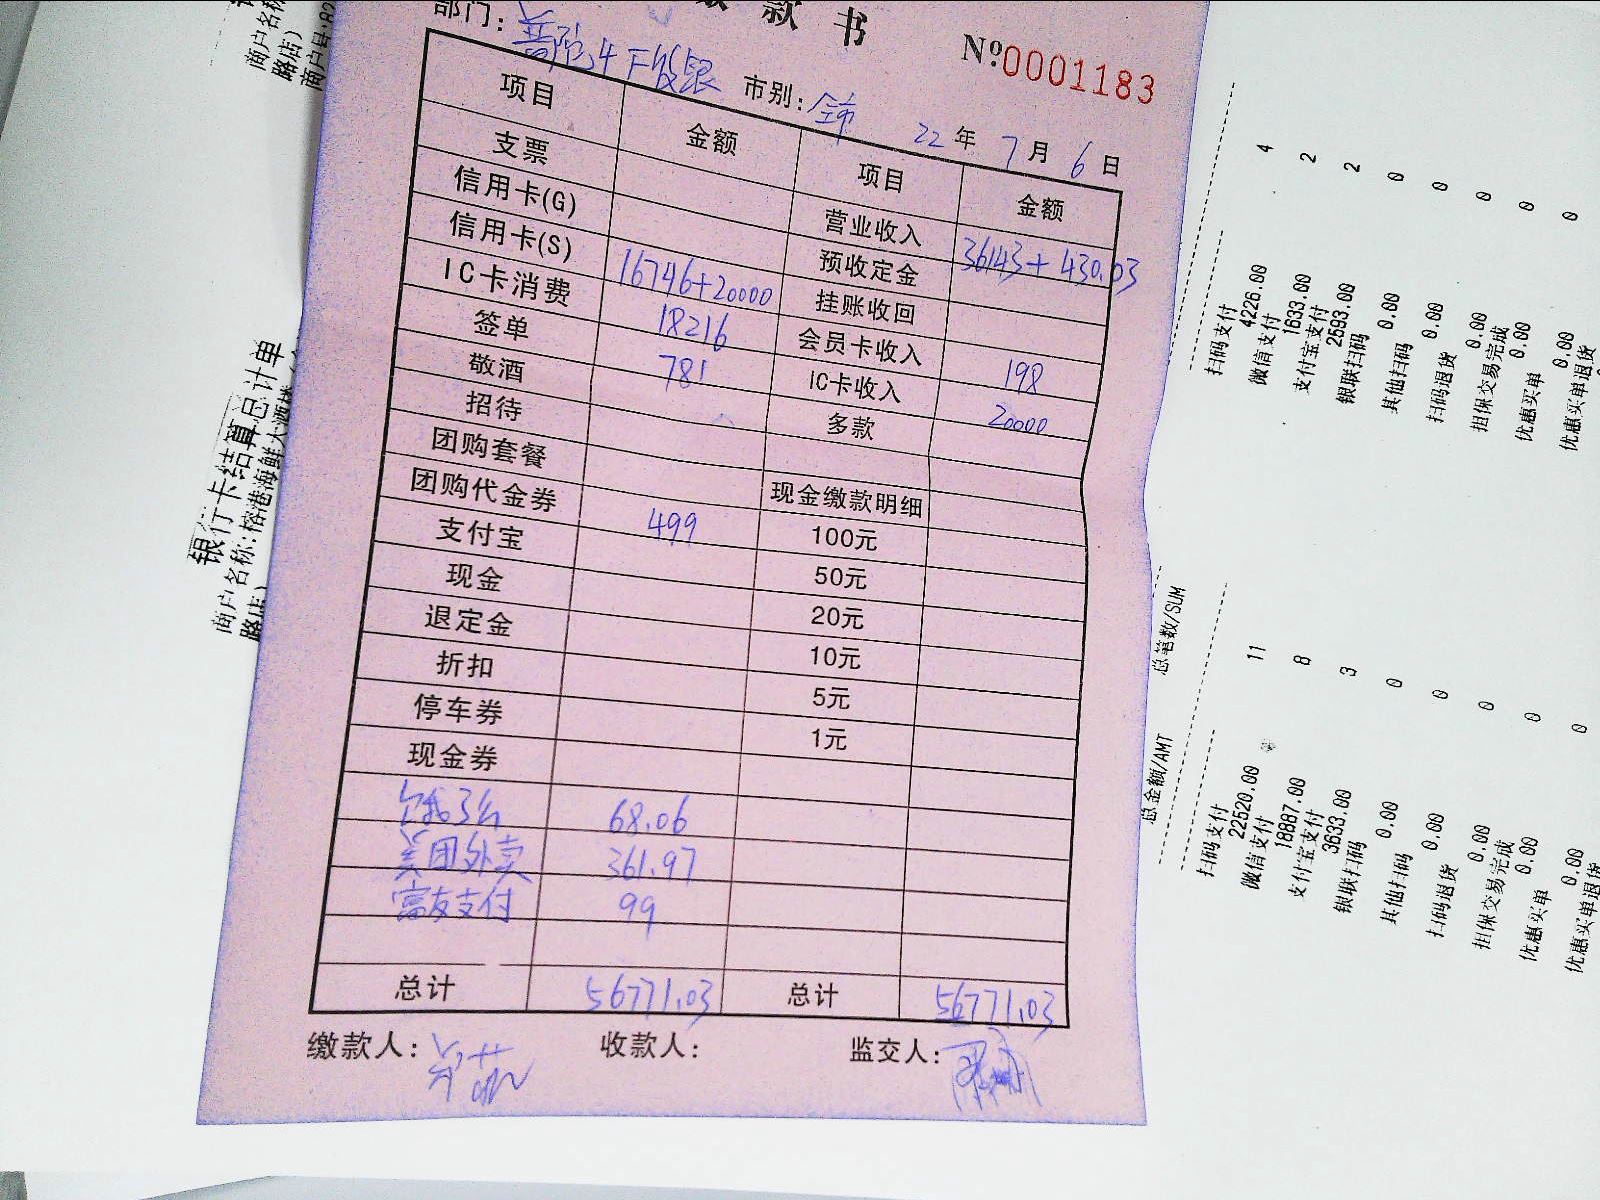 款 书
部门: 普陀4F收银
市别: 全市
Nº0001183
22 年 7 月 6 日
项目 金额 项目 金额
支票 营业收入 36143+430.03
信用卡(G) 预收定金
信用卡(S) 16746+20000 挂账收回
IC卡消费 18216 会员卡收入 198
签单 781 IC卡收入 20000
敬酒 多款
招待
团购套餐 现金缴款明细
团购代金券 499 100元
支付宝 50元
现金 20元
退定金 10元
折扣 5元
停车券 1元
现金券
饿了么 68.06
美团外卖 361.97
富友支付 99
总计 56771.03 总计 56771.03
缴款人:
收款人:
监交人:
银行卡结算总计单
商户名称:榕港海鲜大酒楼
路店)
商户名称
路店)
扫码支付
4226.00 4
微信支付
1633.00 2
支付宝支付
2593.00 2
银联扫码
0.00 0
其他扫码
0.00 0
扫码退货
0.00 0
担保交易完成
0.00 0
优惠买单
0.00 0
优惠买单退货
总金额/AMT 总笔数/SUM
扫码支付
22520.00 11
微信支付
18887.00 8
支付宝支付
3633.00 3
银联扫码
0.00 0
其他扫码
0.00 0
扫码退货
0.00 0
担保交易完成
0.00 0
优惠买单
0.00 0
优惠买单退货